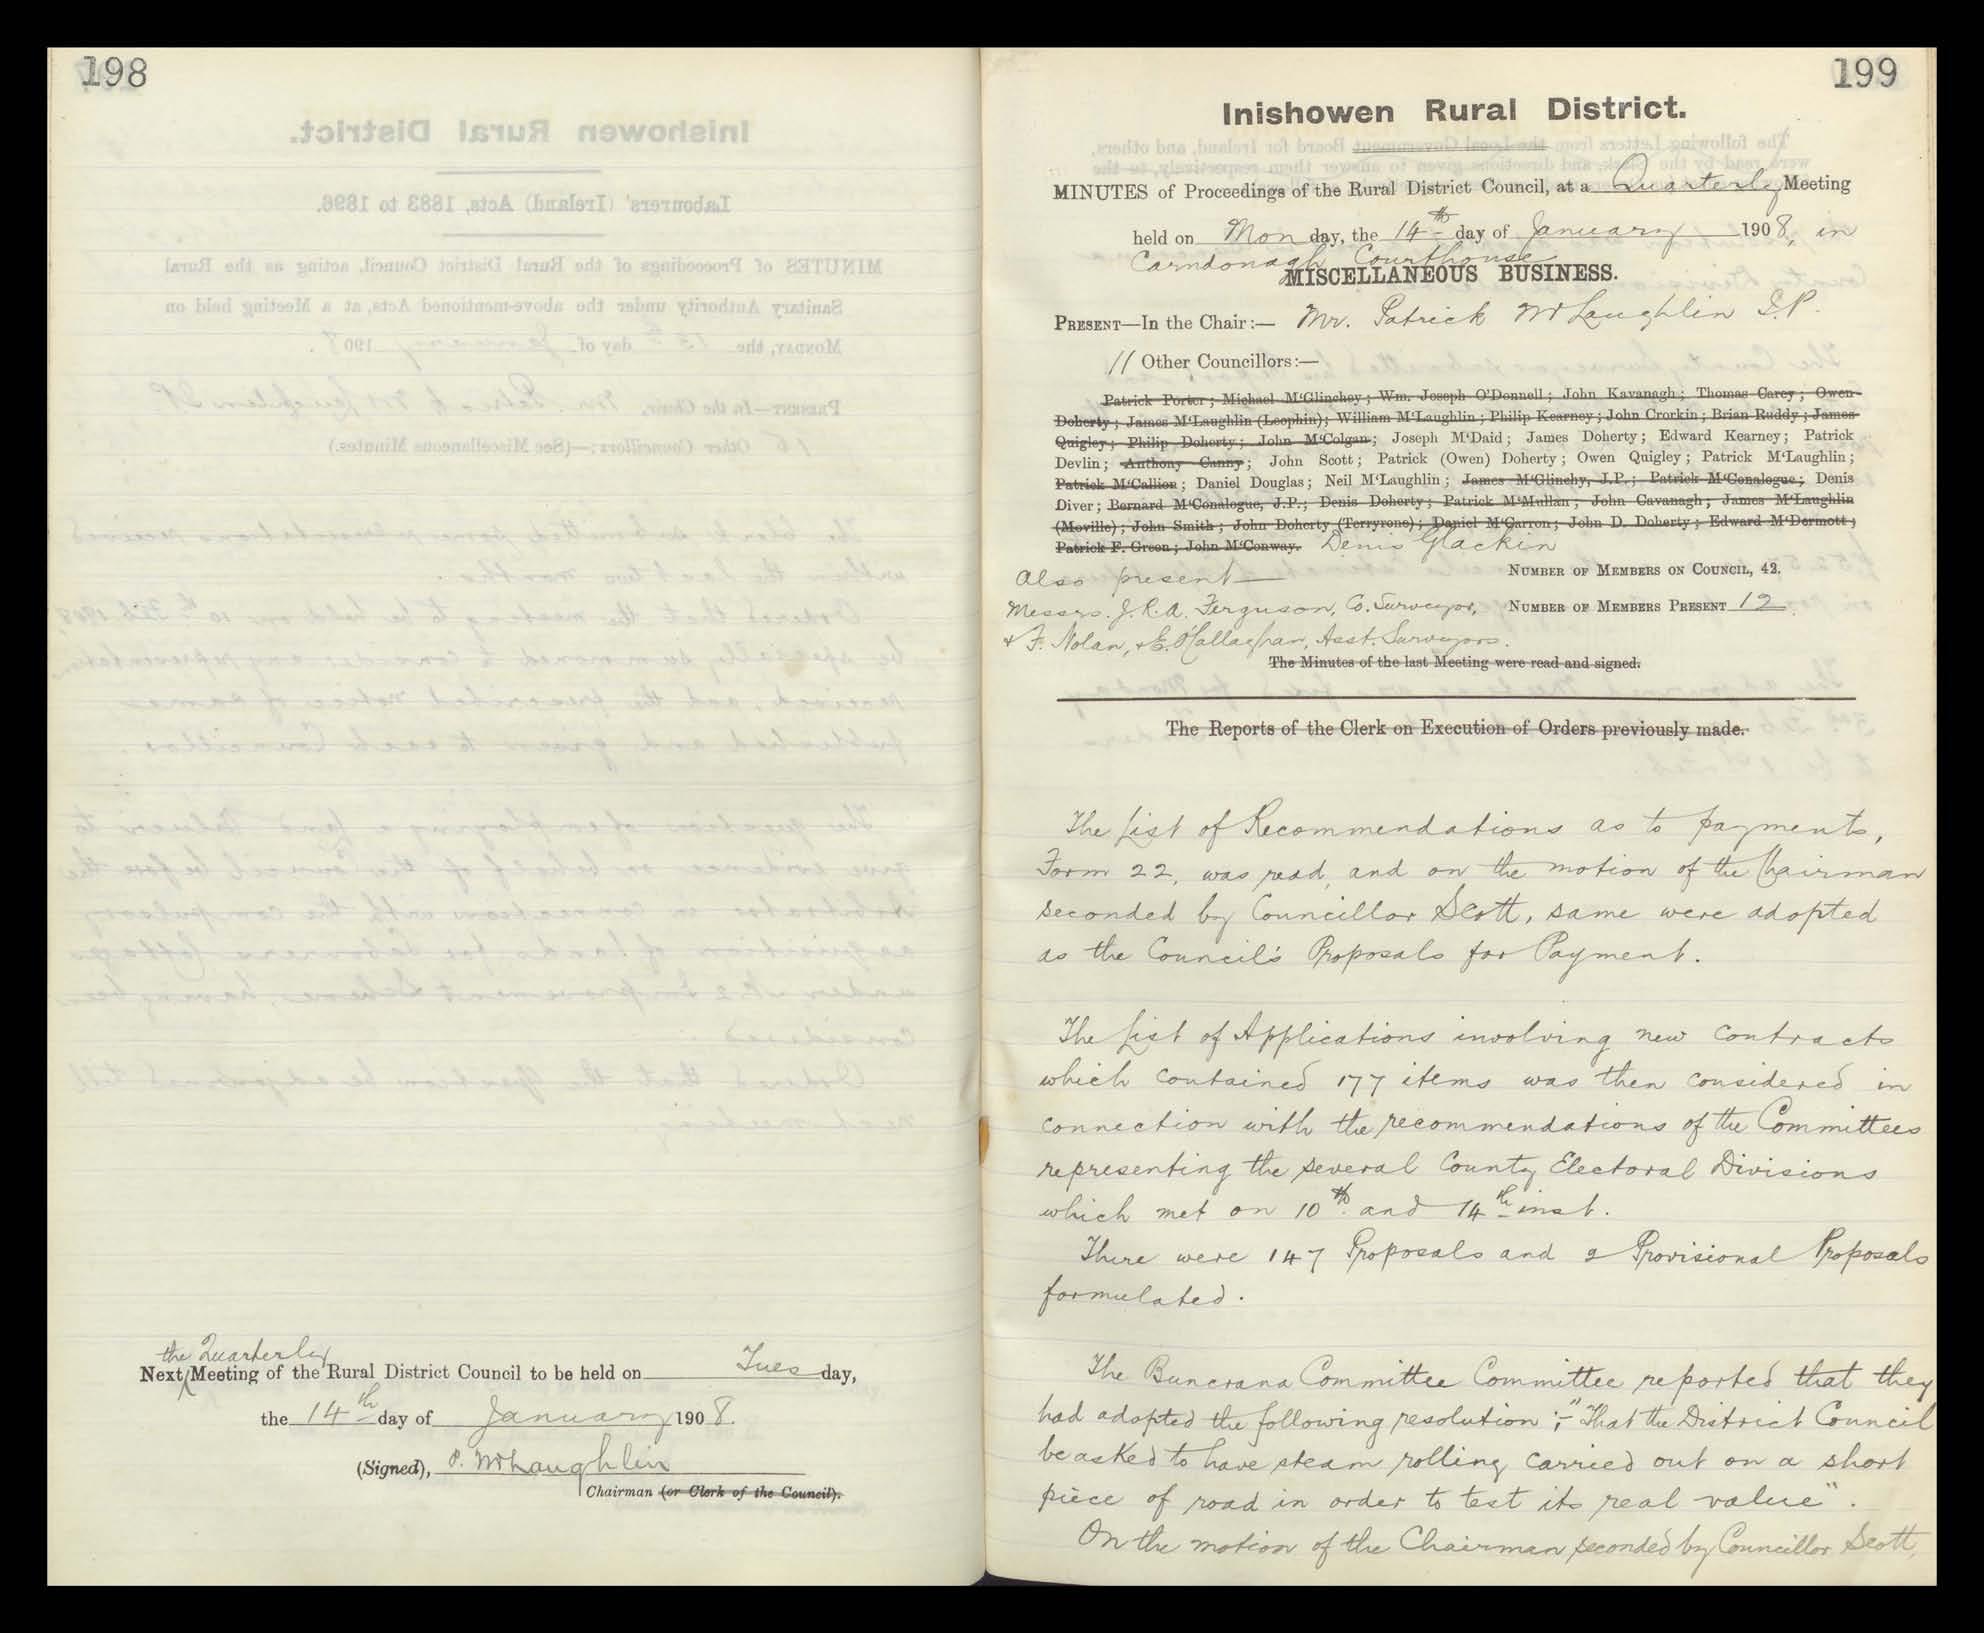 198
the Quarterly
Next Meeting of the Rural District Council to be held on Tuesday,
the 14th day of January 1908.
(Signed), P. McLaughlin
Chairman (or Clerk of the Council).
199
Inishowen Rural District.
MINUTES of Proceedings of the Rural District Council, at a Quarterly Meeting
held on Monday, the 14th day of January 1908, in
Carndonagh Courthouse
MISCELLANEOUS BUSINESS.
PRESENT—In the Chair:— Mr. Patrick McLaughlin J.P.
11 Other Councillors:—
Patrick Porter; Michael M'Glinchey; Wm. Joseph O'Donnell; John Kavanagh; Thomas Carey; Owen
Doherty; James M'Laughlin (Leophin); William M'Laughlin; Philip Kearney; John Crorkin; Brian Ruddy; James
Quigley; Philip Doherty; John M'Colgan; Joseph M'Daid; James Doherty; Edward Kearney; Patrick
Devlin; Anthony Canny; John Scott; Patrick (Owen) Doherty; Owen Quigley; Patrick M'Laughlin;
Patrick M'Callion; Daniel Douglas; Neil M'Laughlin; James M'Glinchy, J.P.; Patrick M'Conalogue; Denis
Diver; Bernard M'Conalogue, J.P.; Denis Doherty; Patrick M'Mullan; John Cavanagh; James M'Laughlin
(Moville); John Smith; John Doherty (Terryrone); Daniel M'Carron; John D. Doherty; Edward M'Dermott;
Patrick F. Green; John M'Conway. Denis Glackin
Also present—
NUMBER OF MEMBERS ON COUNCIL, 42.
Messrs. J.R.A. Ferguson, Co. Surveyor,
NUMBER OF MEMBERS PRESENT 12.
& F. Nolan, & E. O'Callaghan, Asst. Surveyors.
The Minutes of the last Meeting were read and signed.
The Reports of the Clerk on Execution of Orders previously made.
The List of Recommendations as to payments,
Form 22, was read, and on the motion of the Chairman
seconded by Councillor Scott, same were adopted
as the Council's Proposals for Payment.
The List of Applications involving new contracts
which contained 177 items was then considered in
connection with the recommendations of the Committees
representing the several County Electoral Divisions
which met on 10th and 14th inst.
There were 147 Proposals and 2 Provisional Proposals
formulated.
The Buncrana Committee Committee reported that they
had adopted the following resolution:- "That the District Council
be asked to have steam rolling carried out on a short
piece of road in order to test its real value".
On the motion of the Chairman seconded by Councillor Scott,